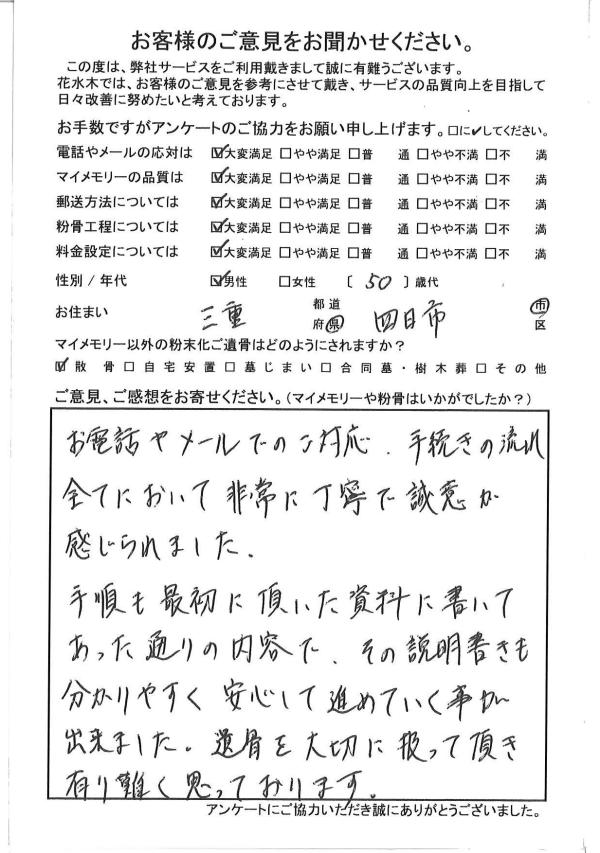 お客様のご意見をお聞かせください。
この度は、弊社サービスをご利用戴きまして誠に有難うございます。
花水木では、お客様のご意見を参考にさせて戴き、サービスの品質向上を目指して
日々改善に努めたいと考えております。
お手数ですがアンケートのご協力をお願い申し上げます。□に✔してください。
電話やメールの応対は ☑大変満足 □やや満足 □普 通 □やや不満 □不 満
マイメモリーの品質は ☑大変満足 □やや満足 □普 通 □やや不満 □不 満
郵送方法については ☑大変満足 □やや満足 □普 通 □やや不満 □不 満
粉骨工程については ☑大変満足 □やや満足 □普 通 □やや不満 □不 満
料金設定については ☑大変満足 □やや満足 □普 通 □やや不満 □不 満
性別 / 年代 ☑男性 □女性 〔 50 〕歳代
お住まい 三重 都道府県 四日市 市/区
マイメモリー以外の粉末化ご遺骨はどのようにされますか?
☑散 骨 □自宅安置 □墓じまい □合同墓・樹木葬 □その他
ご意見、ご感想をお寄せください。(マイメモリーや粉骨はいかがでしたか?)
お電話やメールでのご対応、手続きの流れ
全てにおいて非常に丁寧で誠意が
感じられました。
手順も最初に頂いた資料に書いて
あった通りの内容で、その説明書きも
分かりやすく安心して進めていく事が
出来ました。遺骨を大切に扱って頂き
有り難く思っております。
アンケートにご協力いただき誠にありがとうございました。